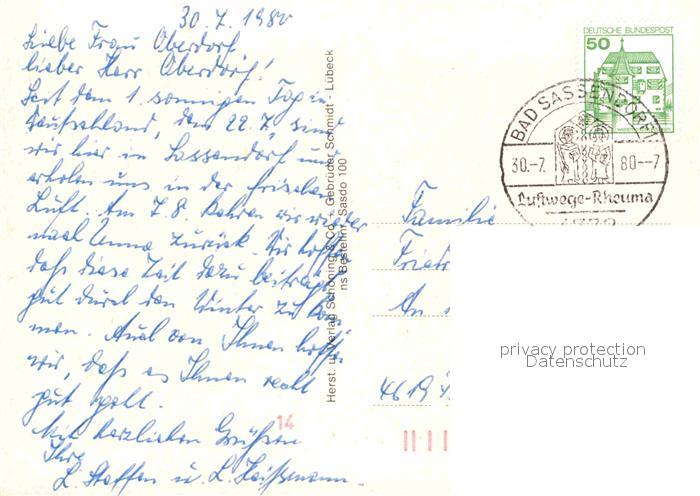 30.7.1980
Liebe Frau Oberdorf,
lieber Herr Oberdorf!
Seit dem 1. sonnigen Tag in
Deutschland, dem 22.7., sind
wir hier in Sassendorf und
erholen uns in der frischen
Luft. Am 7.8. kehren wir wieder
nach Unna zurück. Wir hoffen
daß diese Zeit dazu beiträgt
gut durch den Winter zu kom-
men. Auch von Ihnen hoffen
wir, daß es Ihnen recht
gut geht.
Mit herzlichen Grüßen
Ihre
L. Steffen u. L.
Herst. u. Verlag Schöning & Co. + Gebrüder Schmidt - Lübeck
ns Bestellnr. Sasdo 100
DEUTSCHE BUNDESPOST
50
BAD SASSENDORF 1
30.-7. 80--7
Luftwege-Rheuma
4772
Familie
Friedr
An
4619
14
privacy protection
Datenschutz